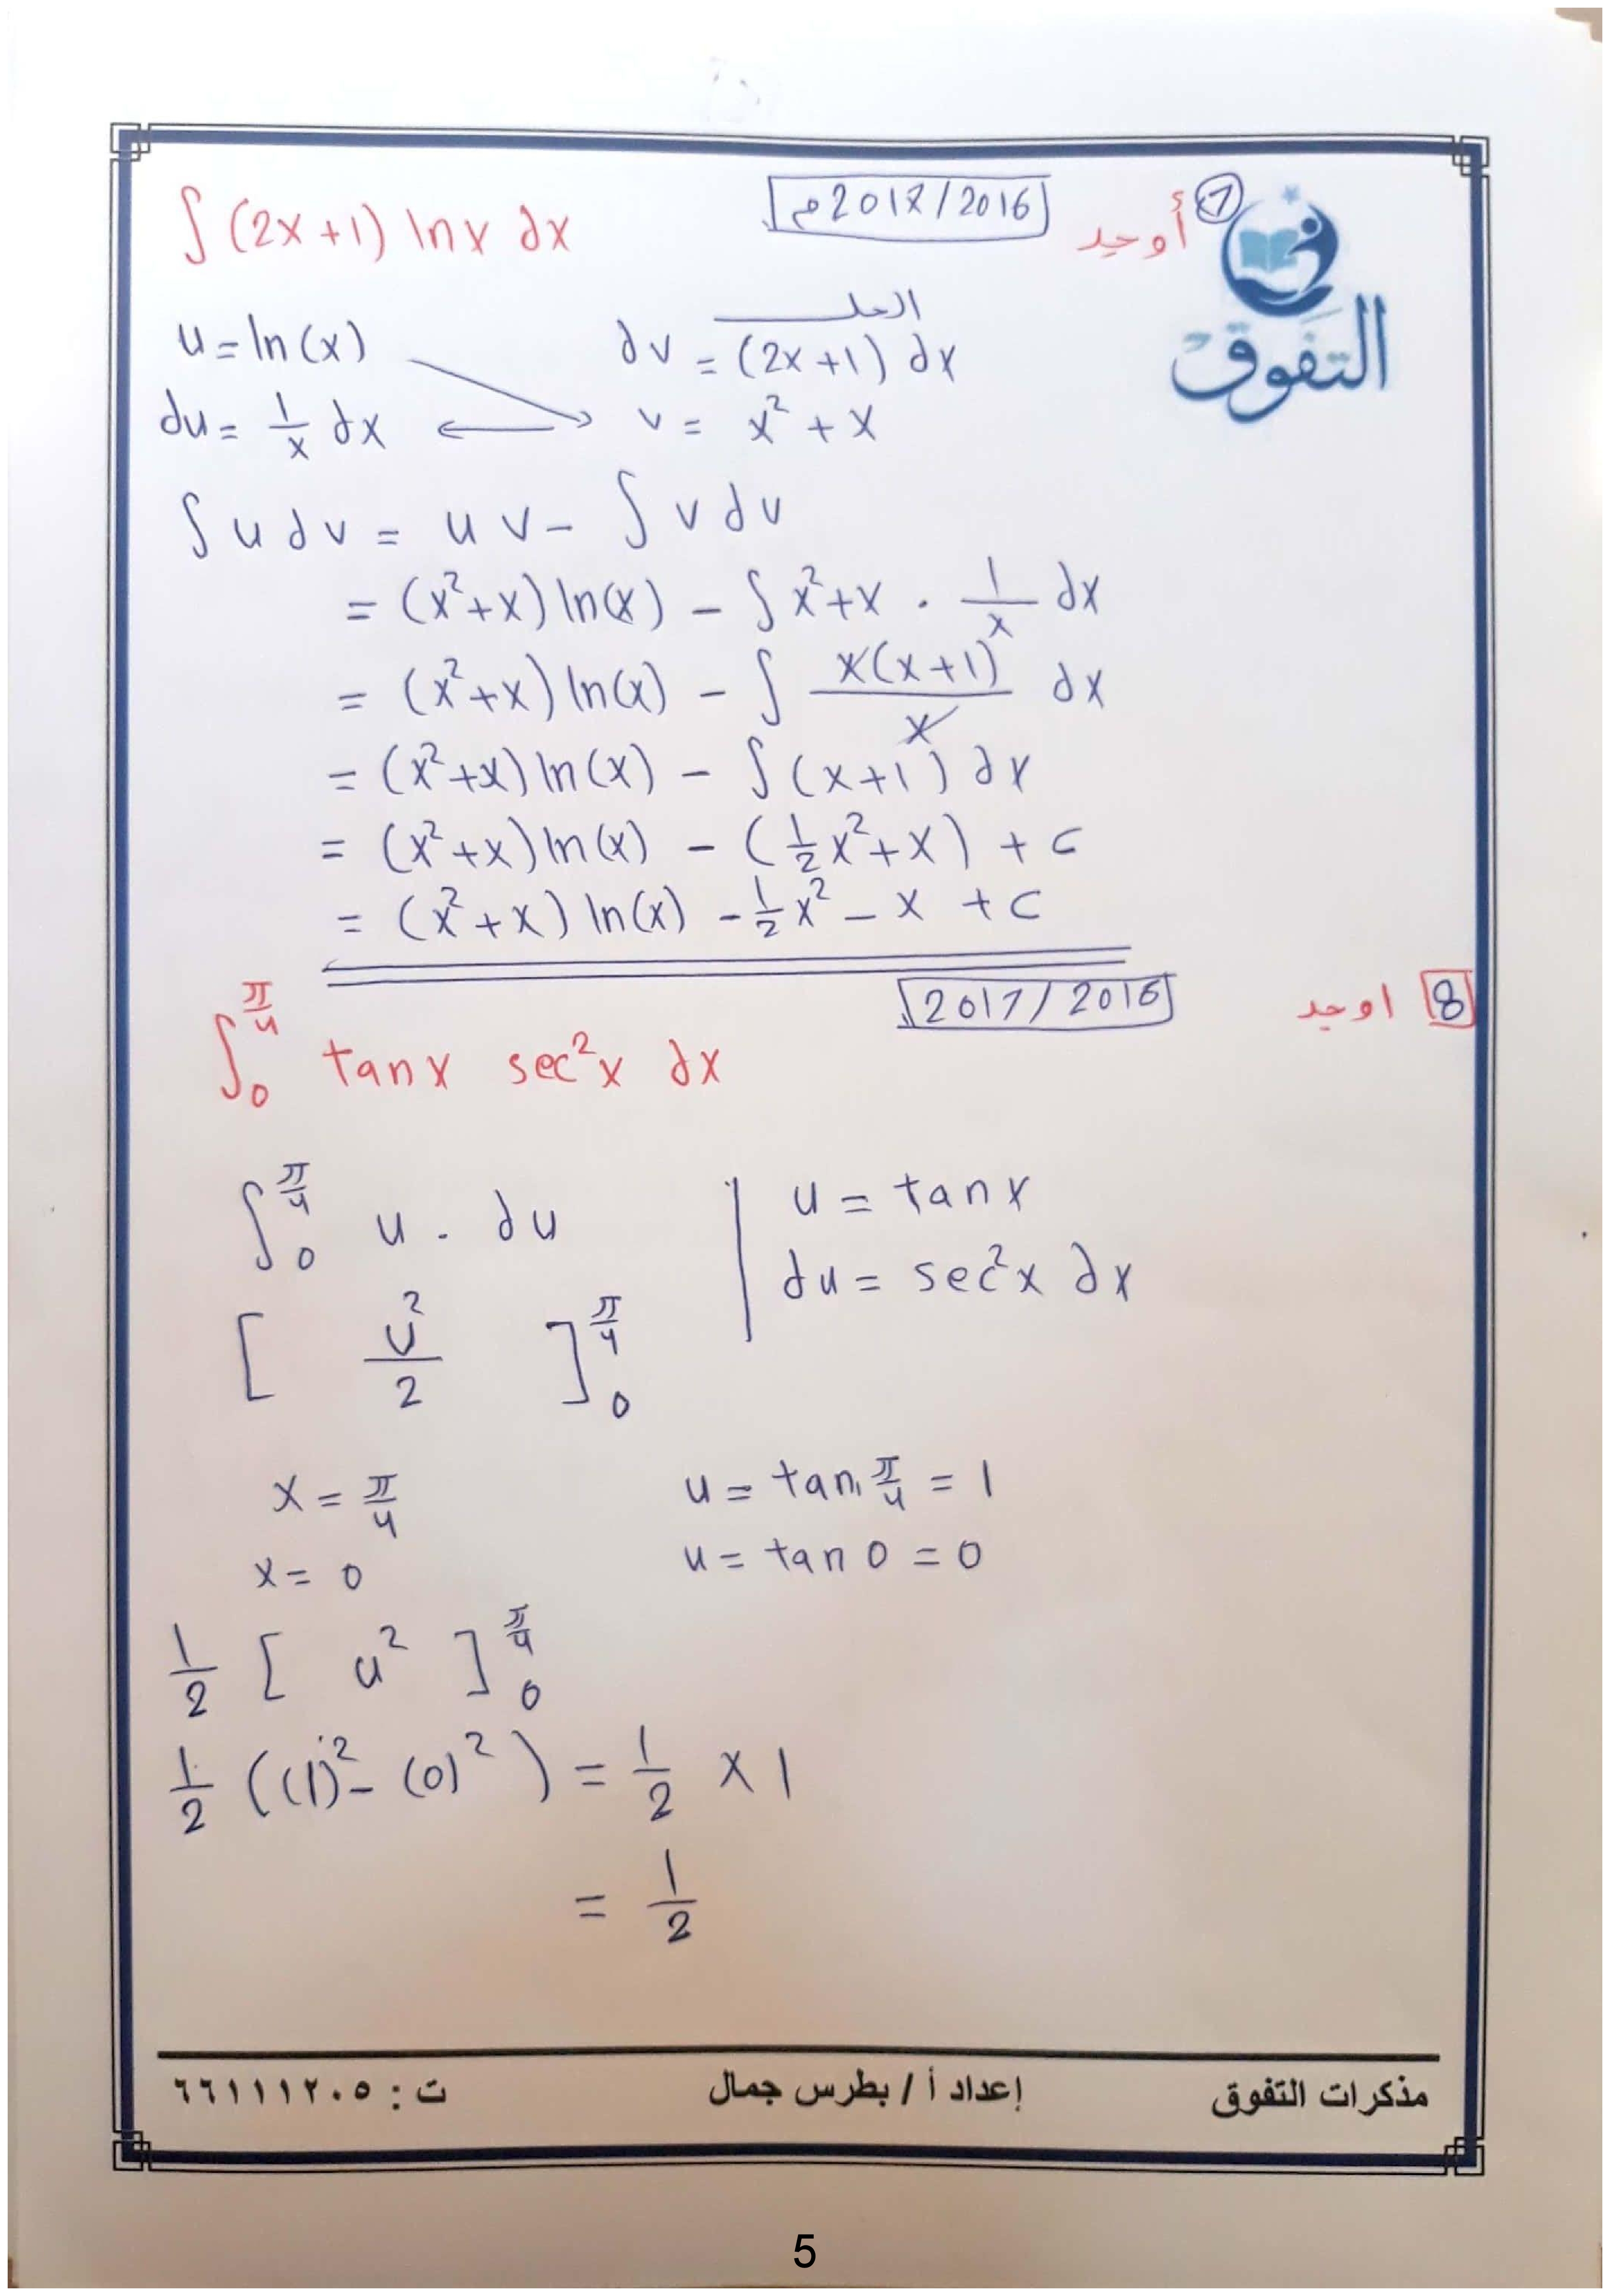 7 أوجد
2017/2016م
∫ (2x+1) ln x dx
التفوق
الحل
u = ln(x) dv = (2x+1) dx
du = 1/x dx v = x² + x
∫ u dv = u v - ∫ v du
= (x²+x) ln(x) - ∫ x²+x . 1/x dx
= (x²+x) ln(x) - ∫ x(x+1)/x dx
= (x²+x) ln(x) - ∫ (x+1) dx
= (x²+x) ln(x) - (1/2 x²+x) + c
= (x²+x) ln(x) - 1/2 x² - x + c
8 اوجد
2017/2016
∫₀^(π/4) tan x sec²x dx
∫₀^(π/4) u . du
u = tan x
du = sec²x dx
[ u²/2 ]₀^(π/4)
x = π/4 u = tan π/4 = 1
x = 0 u = tan 0 = 0
1/2 [ u² ]₀^(π/4)
1/2 ((1)² - (0)²) = 1/2 × 1
= 1/2
مذكرات التفوق إعداد أ / بطرس جمال ت : ٦٦١١١٢٠٥
5